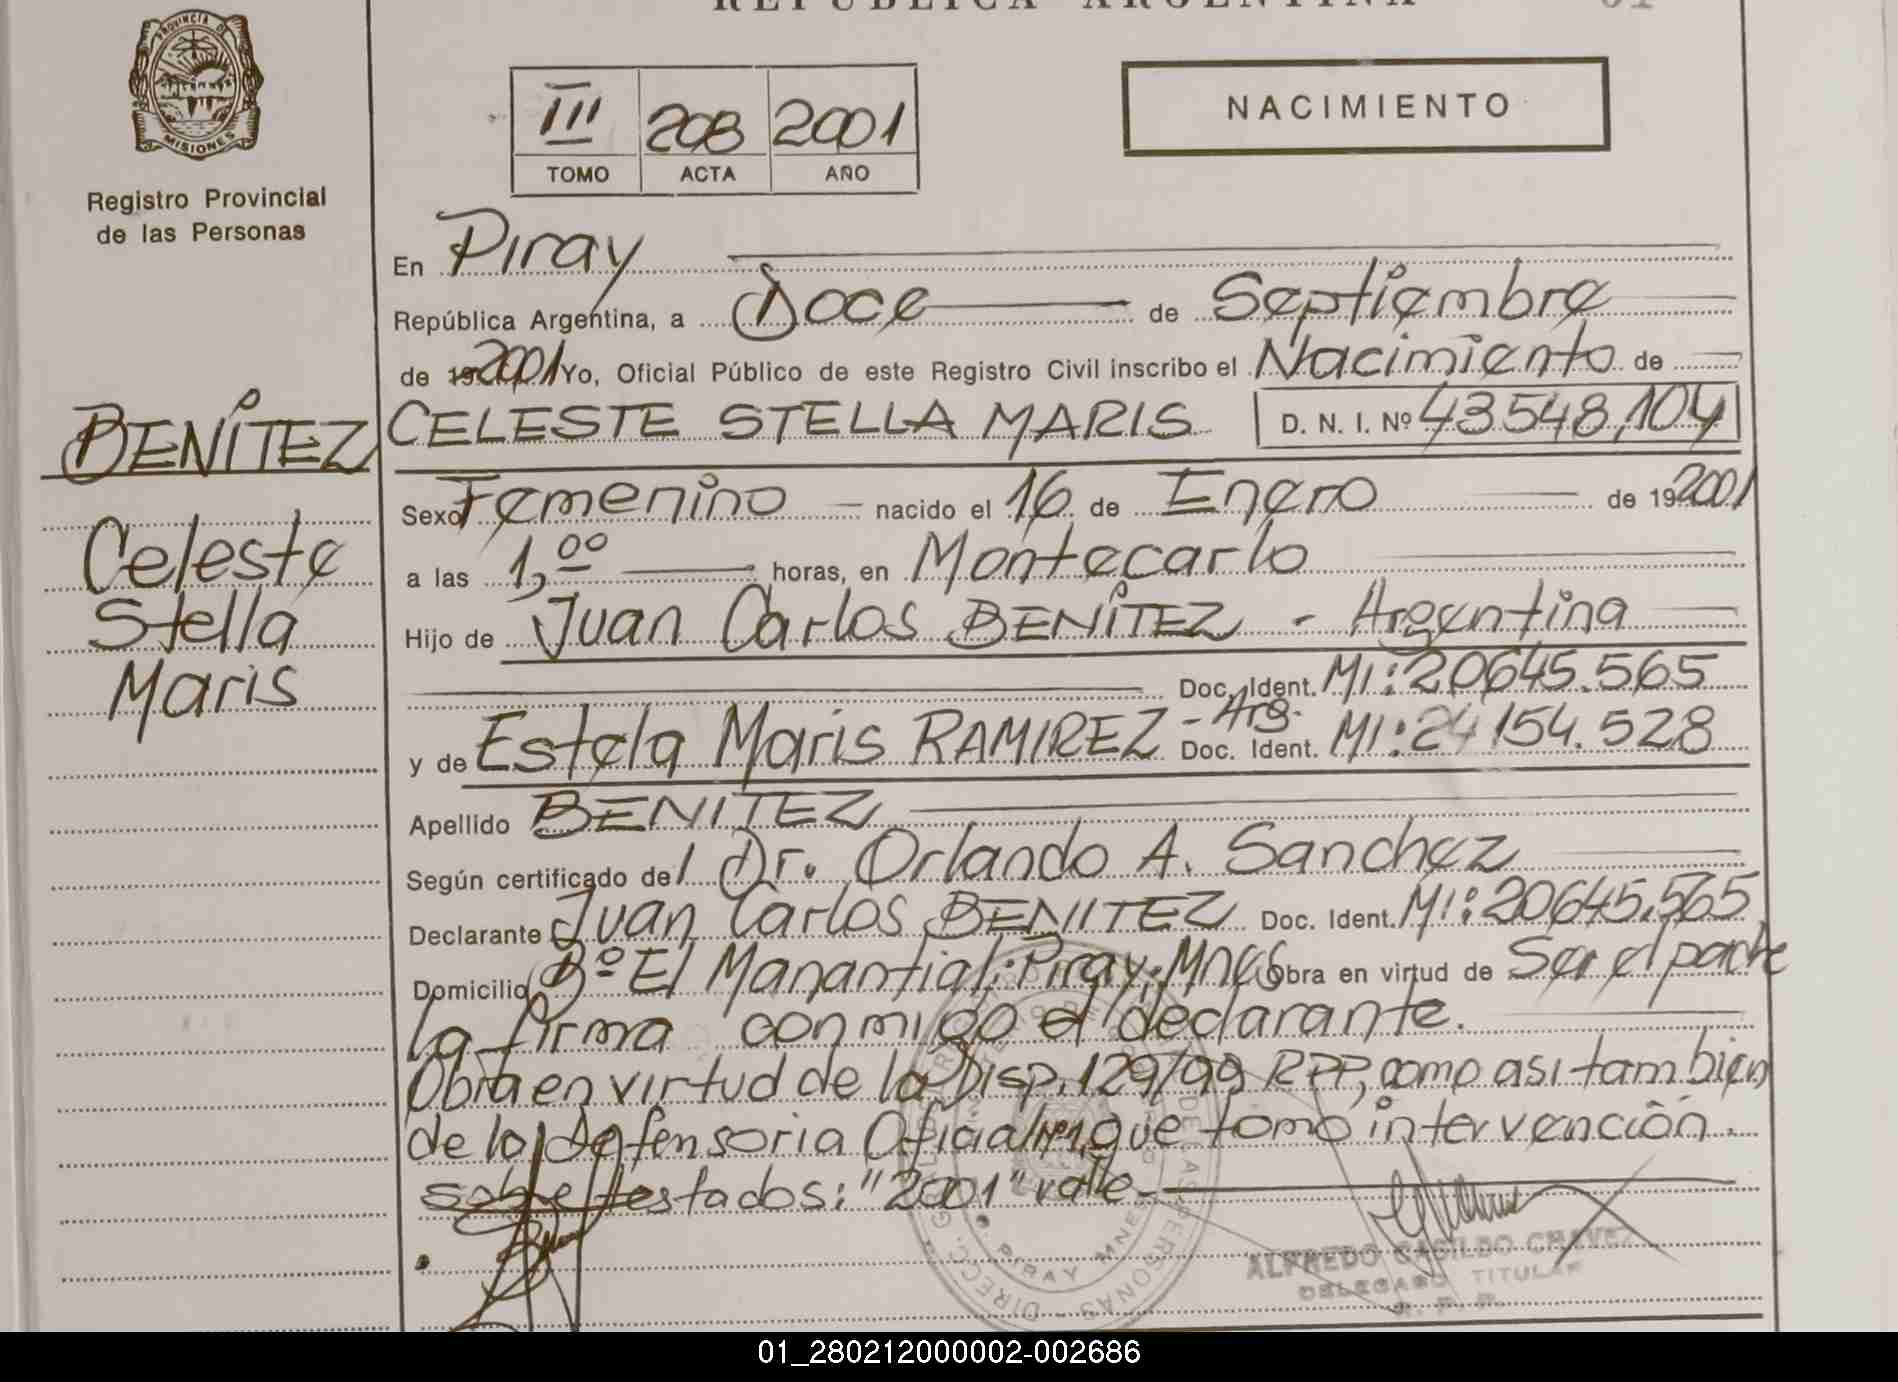 REPUBLICA ARGENTINA 01
PROVINCIA D MISIONES
Registro Provincial
de las Personas
III 208 2001
TOMO ACTA AÑO
NACIMIENTO
En Piray
República Argentina, a Doce de Septiembre
de 19 2001 Yo, Oficial Público de este Registro Civil inscribo el Nacimiento de
BENÍTEZ CELESTE STELLA MARIS D. N. I. Nº 43.548,104
Celeste
Stella
Maris
Sexo Femenino nacido el 16 de Enero de 19 2001
a las 1,00 horas, en Montecarlo
Hijo de Juan Carlos BENÍTEZ - Argentina
Doc. Ident. MI: 20645.565
y de Estela Maris RAMIREZ - Arg. Doc. Ident. MI: 24154.528
Apellido BENITEZ
Según certificado del Dr. Orlando A. Sanchez
Declarante Juan Carlos BENITEZ Doc. Ident. MI: 20645.565
Domicilio Bº El Manantial; Piray; Mnes Obra en virtud de Ser el padre
la firma conmigo el declarante.
Obra en virtud de la Disp. 129/99 RPP, como asi tambien
de la Defensoria Oficial Nº1, que tomó intervención.
sobre testados: "2001" valle
PIRAY MNES
DIRECC. GRAL DE LAS PERSONAS
ALFREDO CASILDO CHAVEZ
DELEGADO TITULAR
R. P. P.
01_280212000002-002686